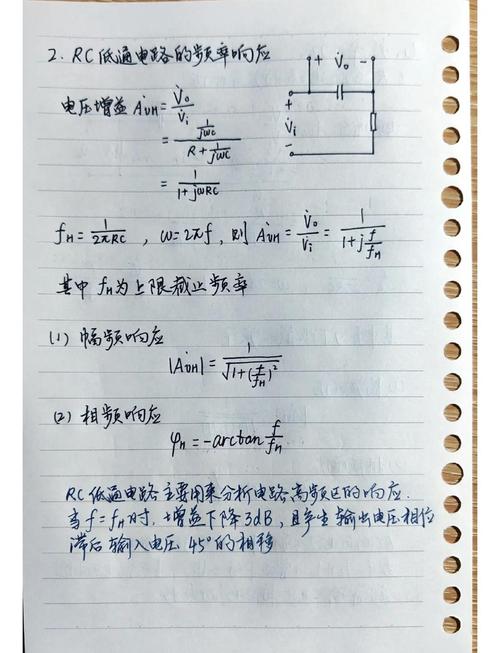 2. RC低通电路的频率响应
+ V̇o -
电压增益 ȦVH = V̇o / V̇i
+
V̇i
-
= (1/jωC) / (R + 1/jωC)
= 1 / (1+jωRC)
fH = 1/(2πRC) , ω=2πf , 则 ȦVH = V̇o/V̇i = 1/(1+j f/fH)
其中 fH 为上限截止频率
(1) 幅频响应
|ȦVH| = 1/√(1+(f/fH)²)
(2) 相频响应
φH = -arctan f/fH
RC低通电路主要用来分析电路高频区的响应.
当f=fH时, 增益下降3dB, 且产生输出电压相位
滞后输入电压45°的相移